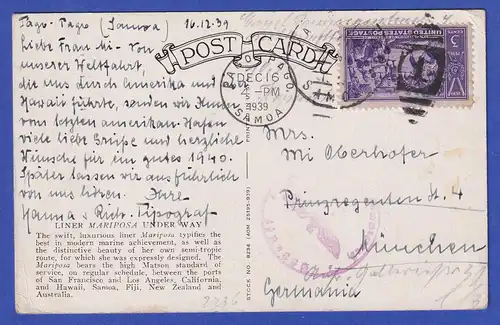 Pago-Pago (Samoa) 16.12.39
Liebe Frau Mi - Von
unserer Weltfahrt,
die uns durch Amerika und
Hawaii führte, senden wir Ihnen
vom letzten amerikan. Hafen
viele liebe Grüße und herzliche
Wünsche für ein gutes 1940.
Später lassen wir ausführlich
von uns hören. Ihre
Hanna & Rich. Tipograf
LINER MARIPOSA UNDER WAY
The swift, luxurious liner Mariposa typifies the
best in modern marine achievement, as well as
the distinctive beauty of her own semi-tropic
route, for which she was expressly designed. The
Mariposa bears the high Matson standard of
service, on regular schedule, between the ports
of San Francisco and Los Angeles, California,
and Hawaii, Samoa, Fiji, New Zealand and
Australia.
POST CARD
PAGO PAGO
DEC 16
-PM
1939
SAMOA
UNITED STATES POSTAGE
3
STOCK NO. 8234
Mrs.
Mi Oberhofer
Prinzregentenstr. 4
München
Germania